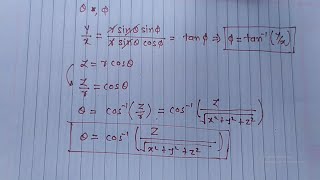 θ &, φ
y/x = r sinθ sinφ / r sinθ cosφ = tanφ ⇒ φ = tan⁻¹ (y/x)
z = r cosθ
z/r = cosθ
θ = cos⁻¹ (z/r) = cos⁻¹ (z/√(x²+y²+z²))
θ = cos⁻¹ (z/√(x²+y²+z²))